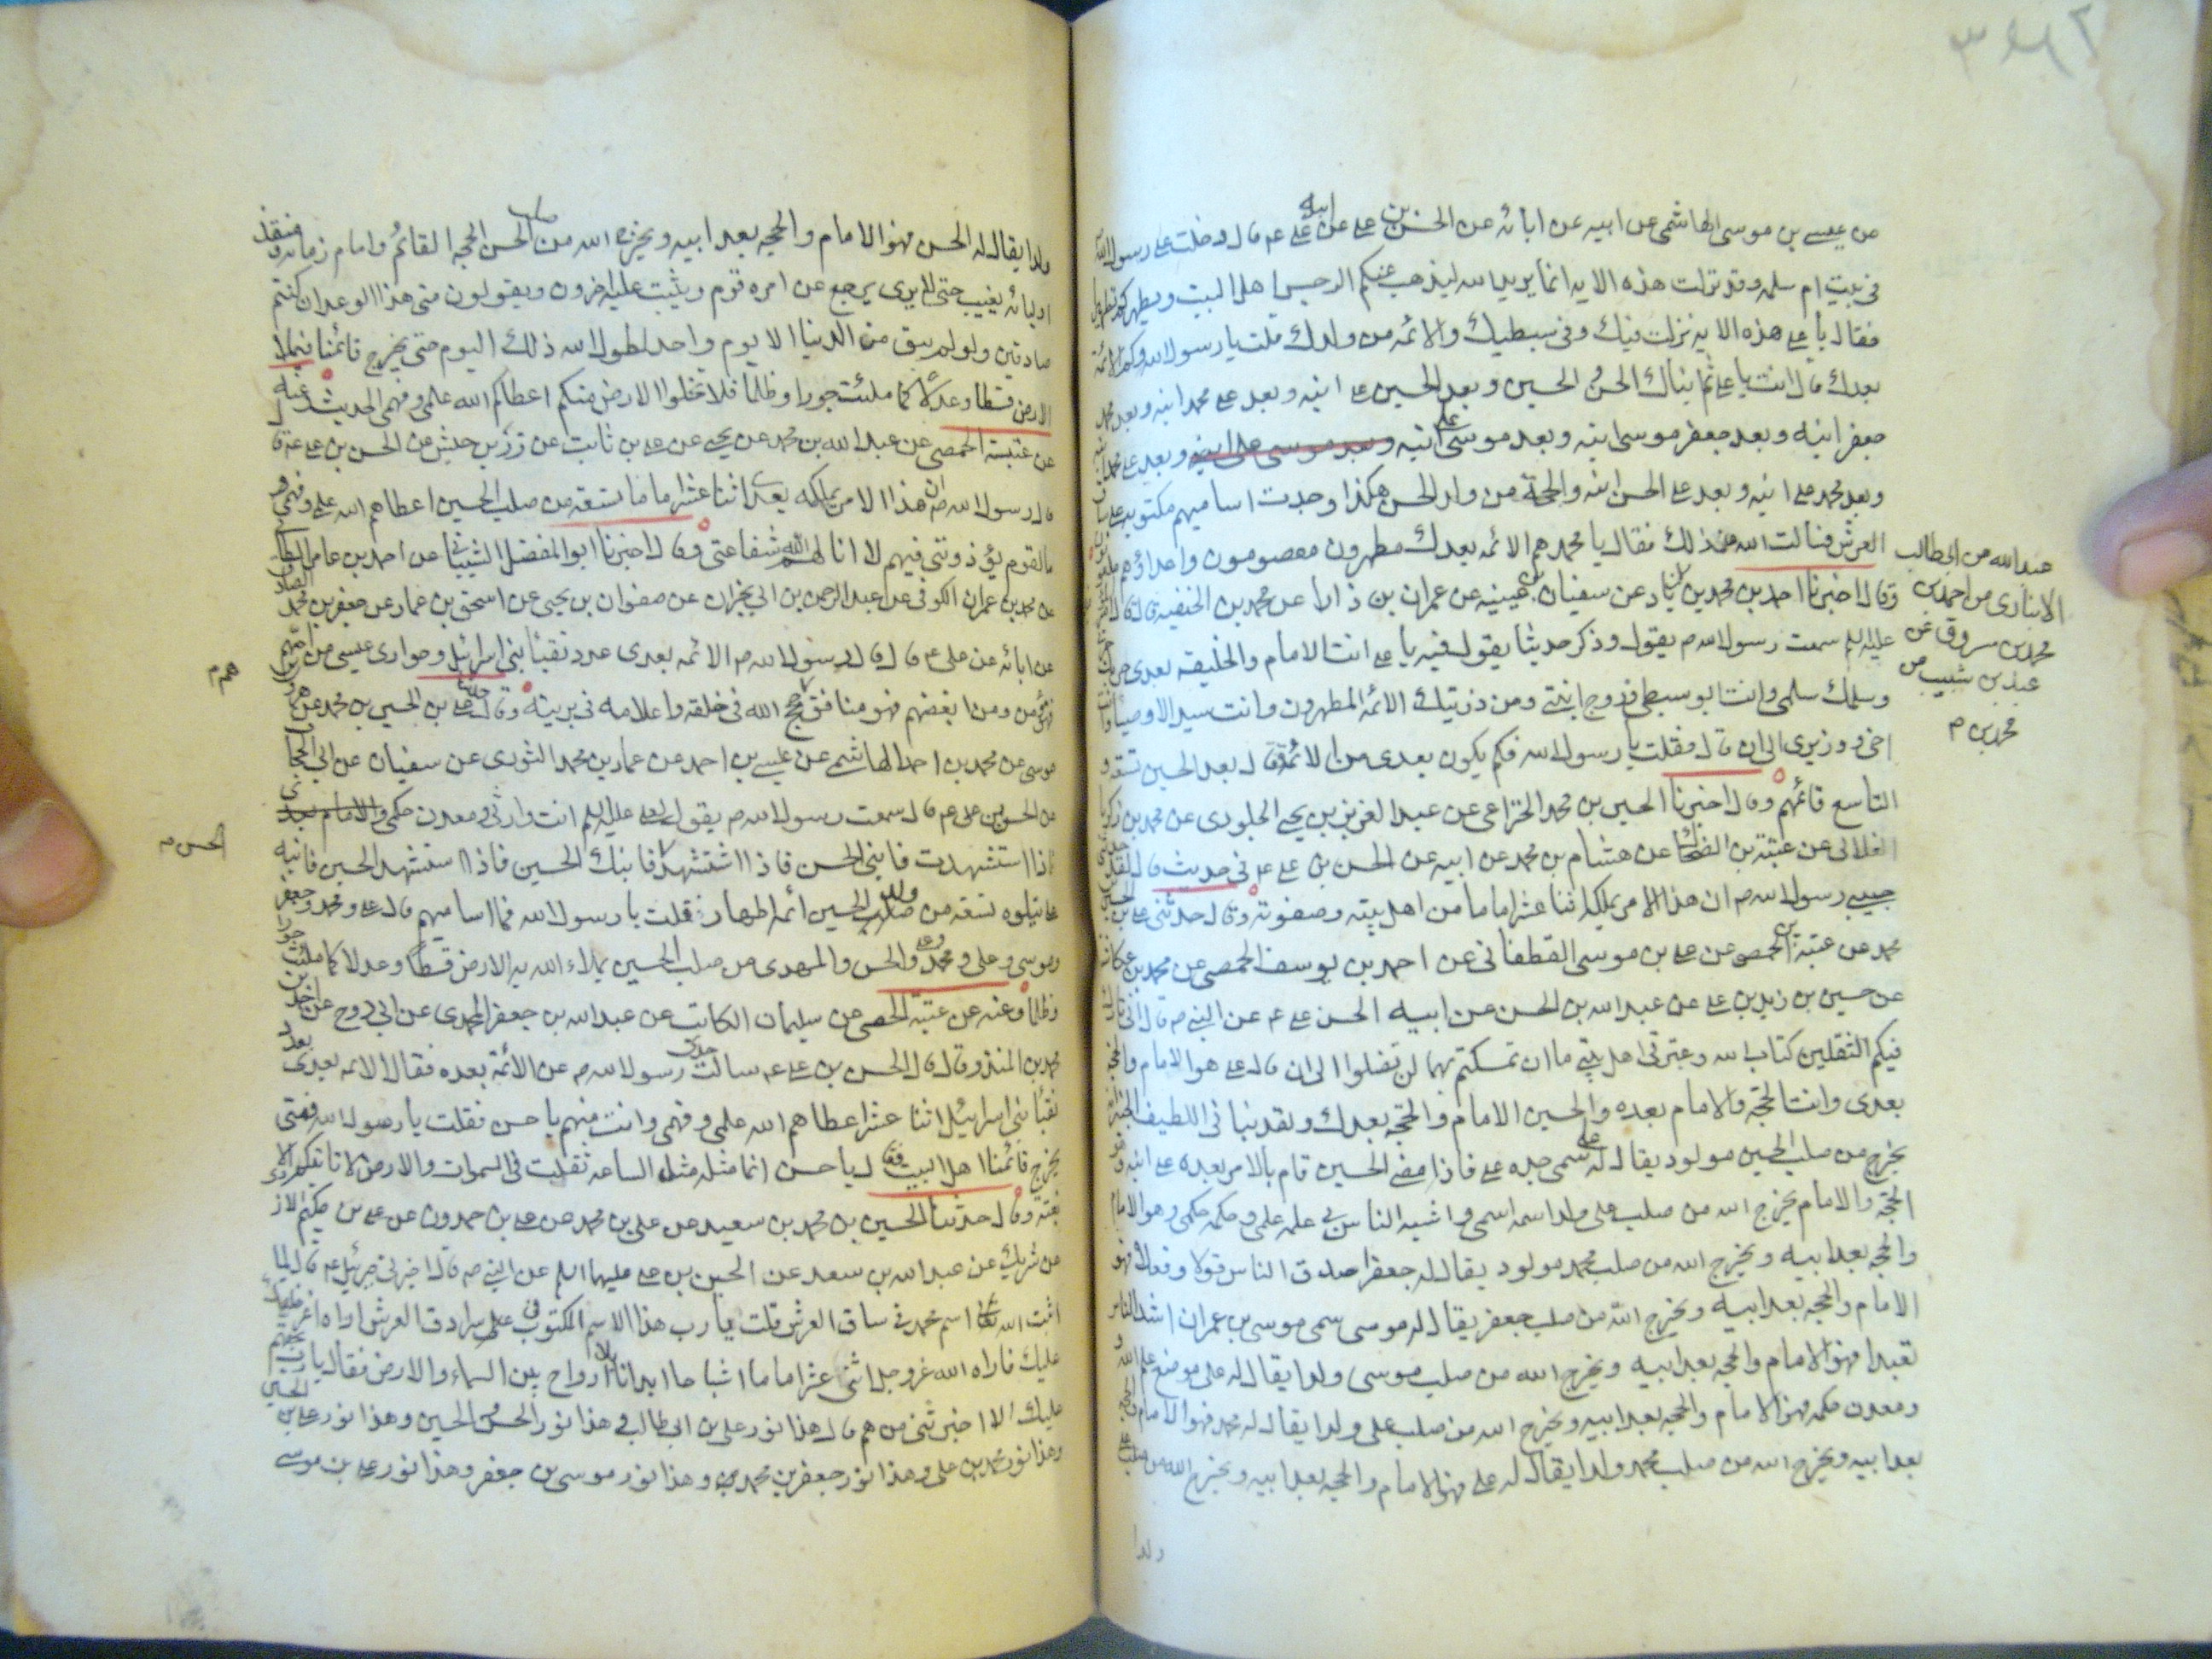 عن عيسى بن موسى الهاشمى عن ابيه عن ابائه عن الحسين بن على عن ابيه على ع قال دخلت على رسول الله
فى بيت ام سلمه وقد نزلت هذه الايه انما يريد الله ليذهب عنكم الرجس اهل البيت ويطهركم تطهيرا
فقال يا على هذه الايه نزلت فيك وفى سبطيك والائمه من ولدك قلت يا رسول الله وكم الائمة
بعدك قال انت يا على ثم ابناك الحسن والحسين وبعد الحسين على ابنه وبعد على محمد ابنه وبعد محمد
جعفر ابنه وبعد جعفر موسى ابنه وبعد موسى على ابنه وبعد على محمد ابنه
وبعد محمد على ابنه وبعد على الحسن ابنه والحجة من ولد الحسن هكذا وجدت اساميهم مكتوبه على ساق
العرش فسالت الله عن ذلك فقال يا محمد هم الائمه بعدك مطهرون معصومون واعداؤهم ملعونون
وقال اخبرنا احمد بن محمد بن عن سفيان بن عيينه عن عمران بن عن محمد بن الحنفيه قال قال
عليه السلم سمعت رسول الله ص يقول وذكر حديثا يقول فيه يا على انت الامام والخليفه بعدى حربك
وسلمك سلمى وانت ابو سبطى وزوج ابنتى ومن ذريتك الائمه المطهرون وانت سيد الاوصياء وانت
اخى ووزيرى الى ان قال فقلت يا رسول الله فكم يكون بعدى من الائمة قال بعد الحسين تسعه و
التاسع قائمهم وقال اخبرنا الحسين بن محمد الخزاعى عن عبد العزيز بن يحيى الجلودى عن محمد بن زكريا
الغلابى عن عتبة بن الضحاك عن هشام بن محمد عن ابيه عن الحسن بن على ع فى حديث قال لقد حدثنى
حبيبى رسول الله ص ان هذا الامر يملكه اثنا عشر اماما من اهل بيته وصفوته وقال حدثنى على بن الحسين
محمد عن عتبة بن الحمصى عن على بن موسى القطفانى عن احمد بن يوسف الحمصى عن محمد بن عكاشة
عن حسين بن زيد بن على عن عبد الله بن الحسن عن ابيه الحسن على ع عن النبى ص قال انى تارك
فيكم الثقلين كتاب الله وعترتى اهل بيتى ما ان تمسكتم بهما لن تضلوا الى ان قال على هو الامام والحجة
بعدى وانت الحجة والامام بعده والحسين الامام والحجة بعدك ولقد نبانى اللطيف الخبير انه
يخرج من صلب الحسين مولود يقال له على سمى جده على فاذا مضى الحسين قام بالامر بعده على ابنه وهو
الحجة والامام يخرج الله من صلب على ولدا سمه اسمى واشبه الناس بى علمه علمى وحكمه حكمى وهو الامام
والحجه بعد ابيه ويخرج الله من صلب محمد مولود يقال له جعفر اصدق الناس قولا وفعلا فهو
الامام والحجه بعد ابيه ويخرج الله من صلب جعفر يقال له موسى سمى موسى بن عمران اشد الناس
تعبدا فهو الامام والحجه بعد ابيه ويخرج الله من صلب موسى ولدا يقال له على موضع علم الله و
ومعدن حكمه فهو الامام والحجه بعد ابيه ويخرج الله من صلب على ولدا يقال له محمد فهو الامام والحجه
بعد ابيه ويخرج الله من صلب محمد ولدا يقال له على فهو الامام والحجه بعد ابيه ويخرج الله من صلب على
ولدا
عبد الله من ابى طالب
الانبارى من احمد بن
محمد بن سروق عن
عبد بن شبيب من
محمد بن م
ولدا يقال له الحسن فهو الامام والحجه بعد ابيه ويخرج الله من صلب الحسن الحجه القائم وامام زمانه ومنقذ
اوليائه يغيب حتى لا يرى يرجع عن امره قوم ويثبت عليه اخرون ويقولون متى هذا الوعد ان كنتم
صادقين ولو لم يبق من الدنيا الا يوم واحد لطول الله ذلك اليوم حتى يخرج قائمنا فيملا
الارض قسطا وعدلا كما ملئت جورا وظلما فلا تخلوا الارض منكم اعطاكم الله علمى وفهمى الحديث وعنه
عن عتبة الحمصى عن عبد الله بن محمد عن يحيى عن على بن ثابت عن زر بن حبيش عن الحسن بن على ع قال
قال رسول الله ص ان هذا الامر يملكه بعدى اثنا عشر اماما تسعه من صلب الحسين اعطاهم الله علمى وفهمى و
ما لقوم يؤذونى فيهم لا انا لهم الله شفاعتى وقال اخبرنا ابو المفضل الشيبانى عن احمد بن عامر الطائى
عن محمد بن عمران الكوفى عن عبد الرحمن بن ابى نجران عن صفوان بن يحيى عن اسحق بن عمار عن جعفر بن محمد الصادق
عن ابائه عن على ع قال قال رسول الله ص الائمه بعدى عدد نقباء بنى اسرائيل وحوارى عيسى من احبهم
فهو مؤمن ومن ابغضهم فهو منافق هم حجج الله فى خلقه واعلامه فى بريته وقال حدثنا على بن الحسين بن محمد عن هارون بن
موسى عن محمد بن احمد الهاشمى عن عيسى بن احمد عن عمار بن محمد الثورى عن سفيان عن ابى الجحاف
من الحسن بن على ع قال سمعت رسول الله ص يقول لعلى عليه السلم انت وارثى ومعدن حكمى والامام بعدى
فاذا استشهدت فابنى الحسن فاذا استشهد فابنك الحسين فاذا استشهد الحسين فابنه
على يتلوه تسعه من صلب ولد الحسين ائمه اطهار فقلت يا رسول الله فما اساميهم قال على ومحمد وجعفر
وموسى وعلى ومحمد وعلى والحسن والمهدى من صلب الحسين يملاء الله به الارض قسطا وعدلا كما ملئت جورا
وظلما وعنه عن عتبة الحمصى عن سليمان الكاتب عن عبد الله بن جعفر المحمدى عن ابى روح عن احمد بن
محمد بن المنذر قال قال الحسن بن على ع سالت جدى رسول الله ص عن الائمة بعده فقال الائمه بعدى بعدد
نقباء بنى اسرائيل اثنا عشر اعطاهم الله علمى وفهمى وانت منهم يا حسن فقلت يا رسول الله فمتى
يخرج قائمنا اهل البيت فقال يا حسن انما مثله مثل الساعه ثقلت فى السموات والارض لا تاتيكم الا
بغتة وقال حدثنا الحسين بن محمد بن سعيد عن على بن محمد عن على بن حمدون عن على بن حكيم الاودى
عن شريك عن عبد الله بن سعد عن الحسين بن على عليهما السلم عن النبى ص قال اخبرنى جبرئيل ع قال لما
اثبت الله اسم محمد فى ساق العرش قلت يا رب هذا الاسم المكتوب فى سرادق العرش اراه اعز خلقك
عليك فاراه الله عز وجل اثنى عشر اماما اشباحا ابدانا بلا ارواح بين السماء والارض فقال يا رب بحقهم
عليك الا اخبرتنى من هم قال هذا نور على بن ابى طالب وهذا نور الحسن والحسين وهذا نور على بن الحسين
وهذا نور محمد بن على وهذا نور جعفر بن محمد وهذا نور موسى بن جعفر وهذا نور على بن موسى
هم م
الحسن م